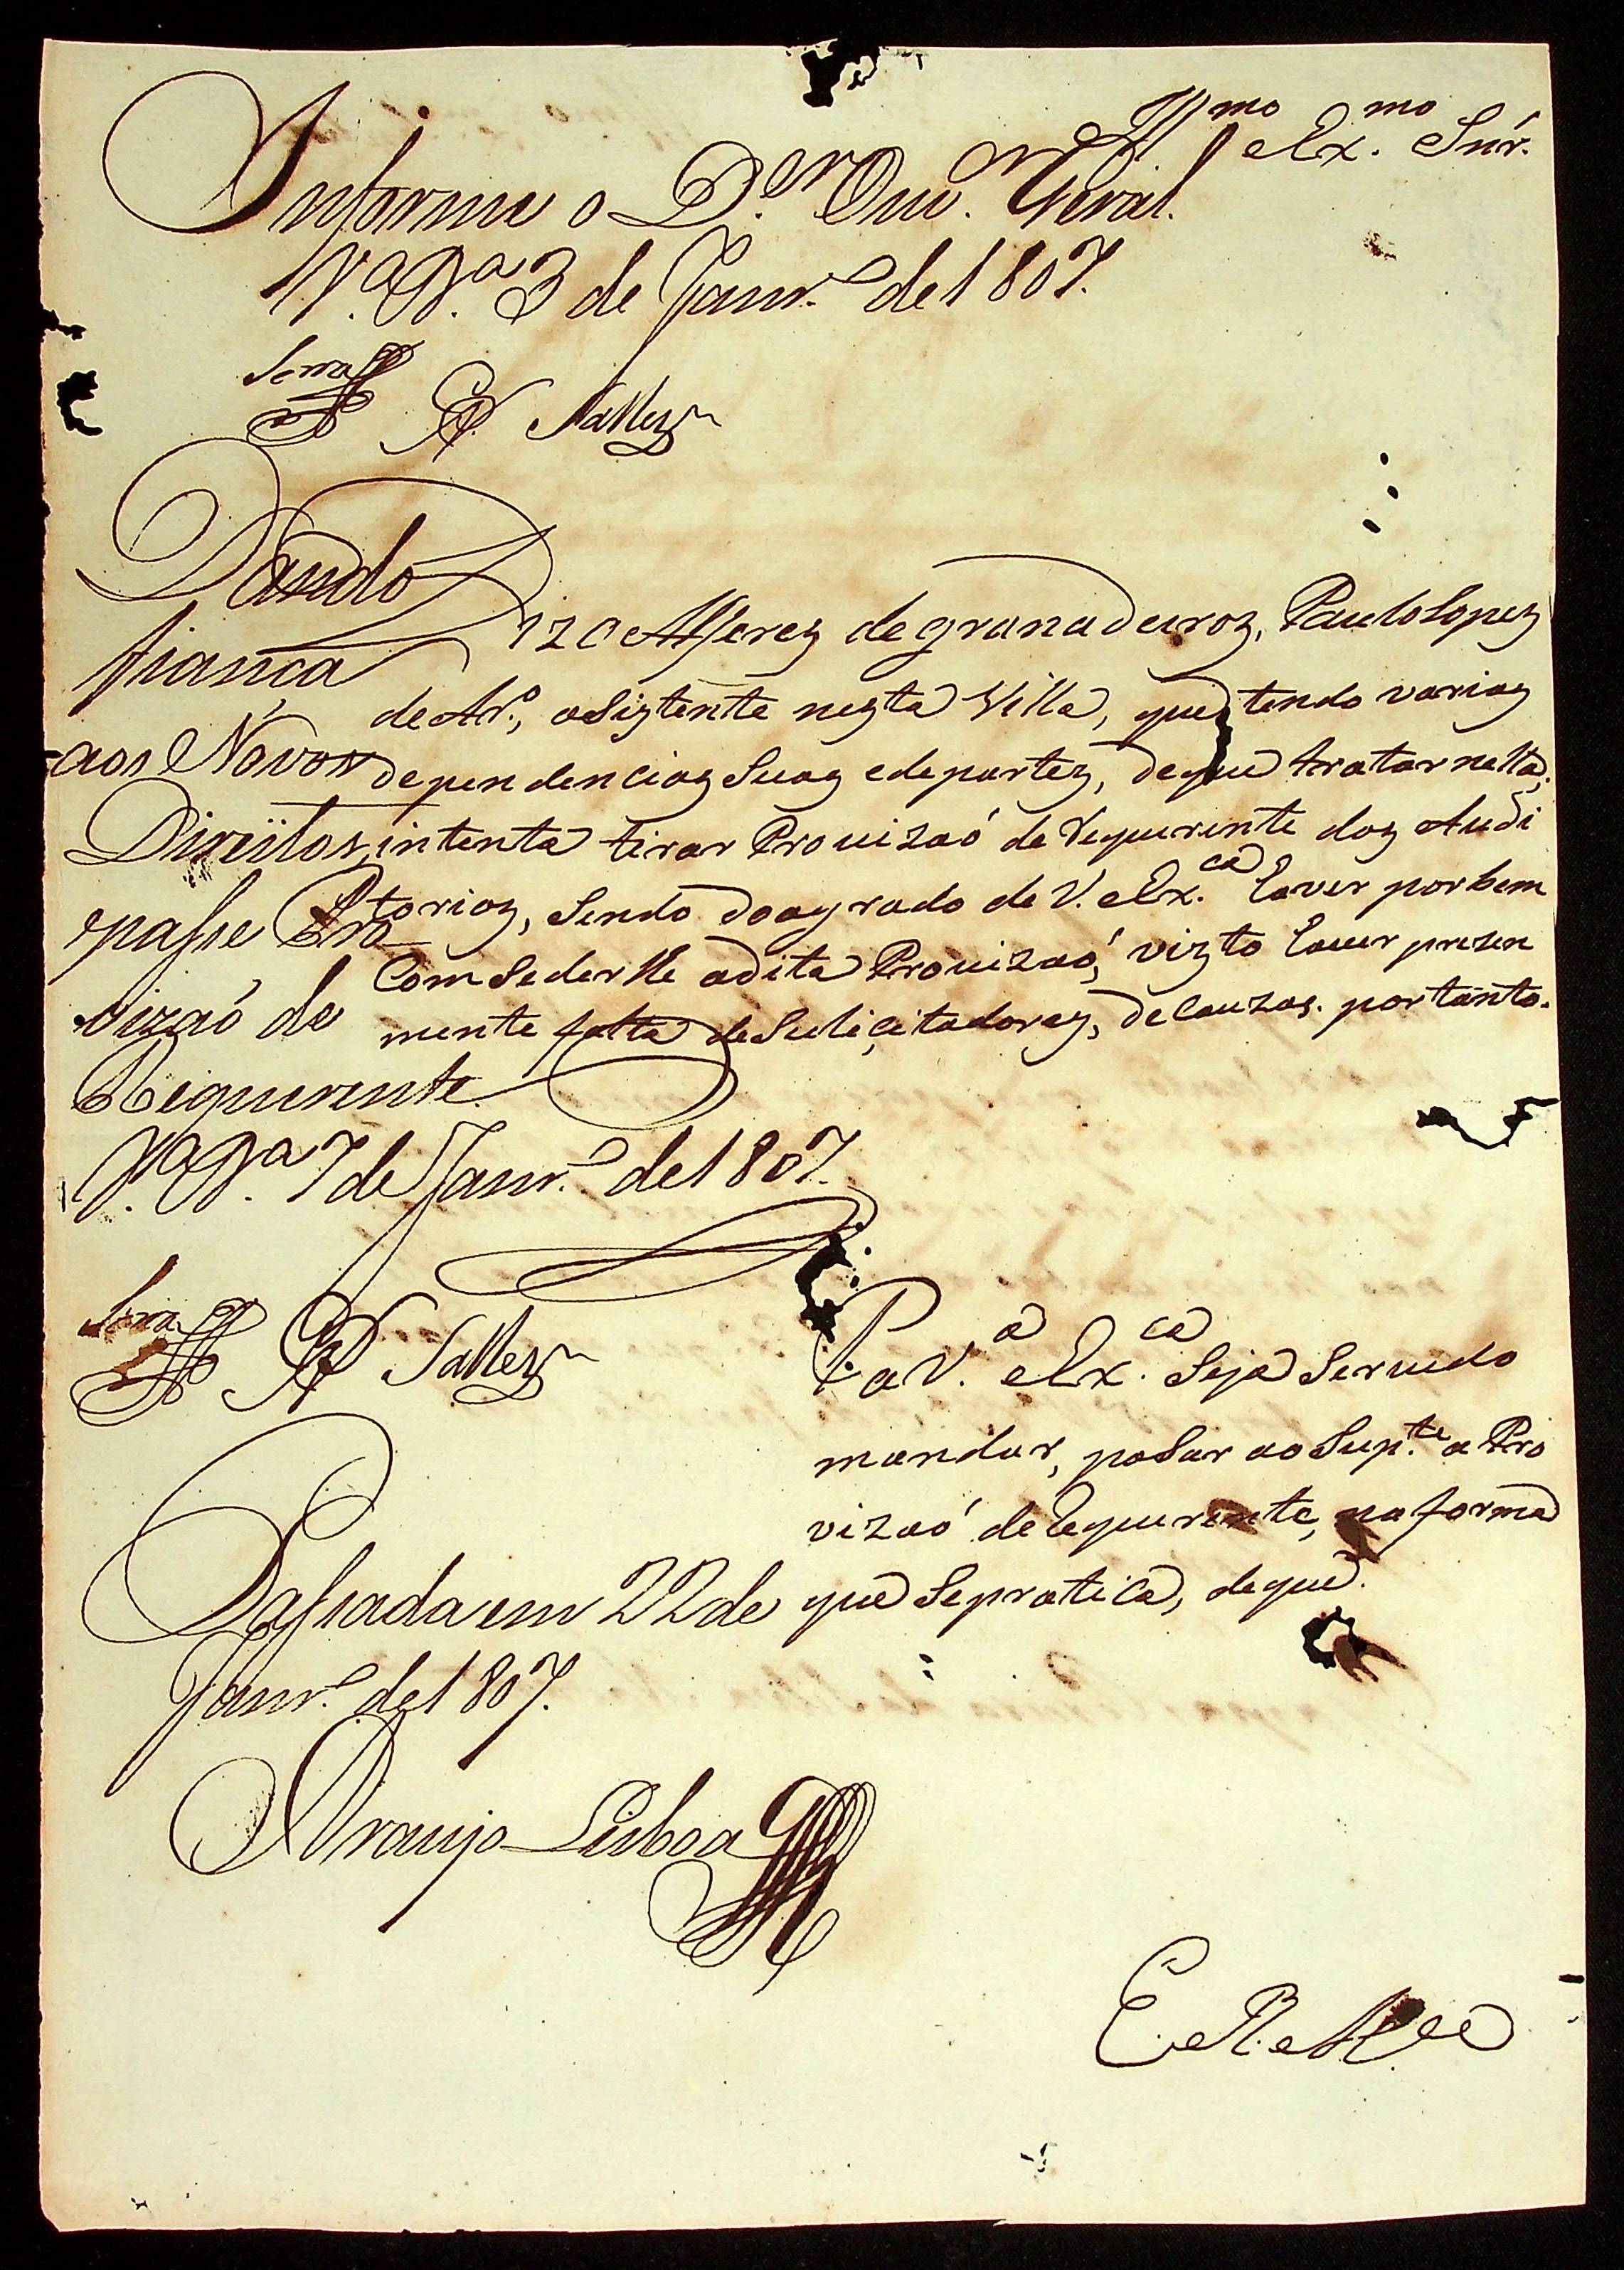 Illmo e Exmo Snr.
Informe o D.or Ouv.or Geral.
V.a B.a 3 de Janr.o de 1807.
Salles
Dando
fiança
aos Novos
Direitos,
passe Pro
vizaó de
Requerente.
V.a B.a 7 de Janr.o de 1807.
Salles
Diz o Alferez de granadeiroz, Paulo Lopez
de Ar.o, asiztente nezta Villa, que tendo varioz
dependenciaz Suaz e de partez, de que tratar nella,
intenta tirar Prouizaó de Requerente doz Audi
torioz, Sendo do agrado de V. Ex.ca haver por bem
Comsederlhe adita Prouizaó, vizto hauer prezen
mente falta de Suliçitadorez, de Cauzas. portanto.
P. a V.a Ex.ca Seja Seruido
mandar, pasar ao Sup.te a Pro
vizaó de Requerente, na forma
que Sepratica, de que.
Passada em 22 de
Janr.o de 1807.
Araujo Lisboa
E. R. M.ce